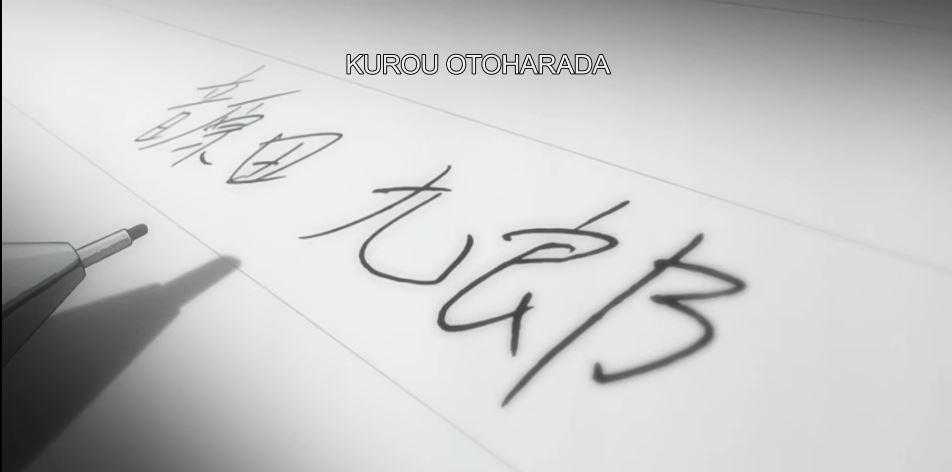 KUROU OTOHARADA
音原田 九郎